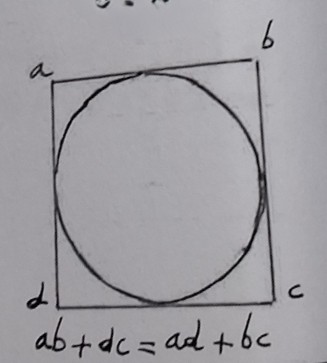 a
b
d
c
ab + dc = ad + bc